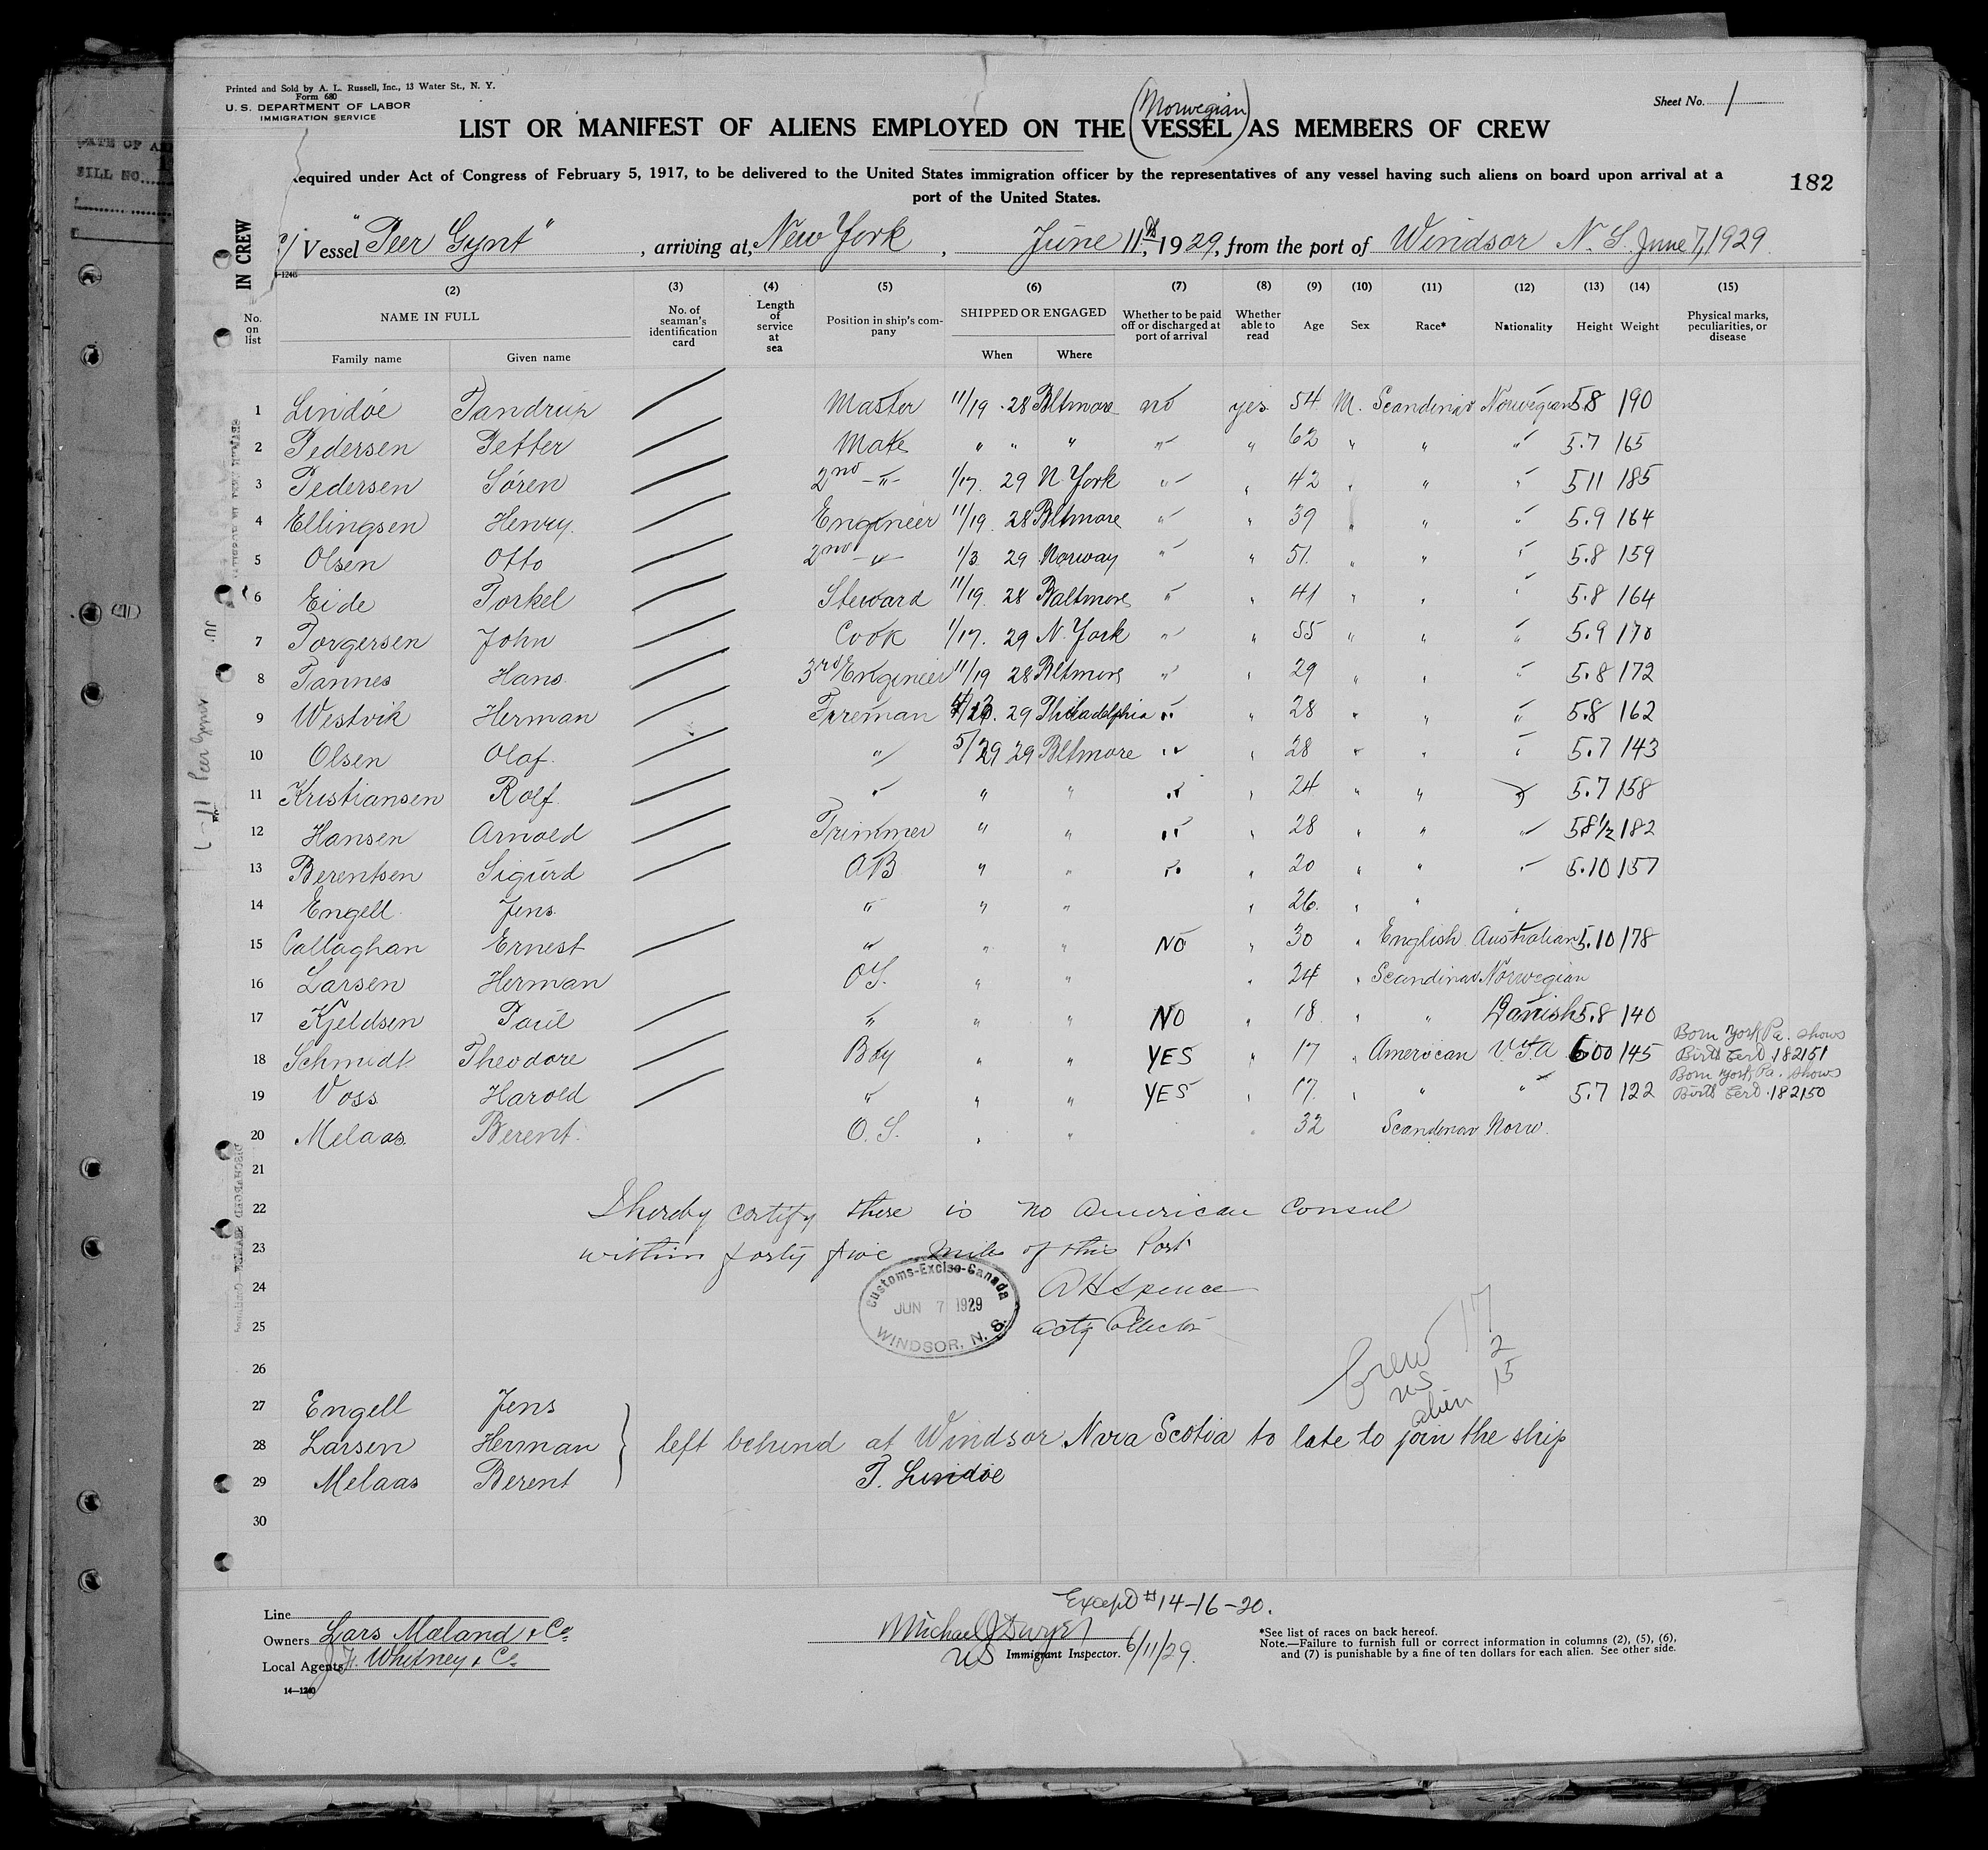 Printed and Sold by A. L. Russell, Inc., 13 Water St., N. Y.
Form 680
U. S. DEPARTMENT OF LABOR
IMMIGRATION SERVICE
Sheet No. 1
(Norwegian)
LIST OR MANIFEST OF ALIENS EMPLOYED ON THE VESSEL AS MEMBERS OF CREW
equired under Act of Congress of February 5, 1917, to be delivered to the United States immigration officer by the representatives of any vessel having such aliens on board upon arrival at a
port of the United States.
182
IN CREW
Vessel "Peer Gynt", arriving at, New York, June 11th, 1929, from the port of Windsor N. S. June 7, 1929
(2) (3) (4) (5) (6) (7) (8) (9) (10) (11) (12) (13) (14) (15)
No. on list
NAME IN FULL
Family name Given name
No. of seaman's identification card
Length of service at sea
Position in ship's company
SHIPPED OR ENGAGED
When Where
Whether to be paid off or discharged at port of arrival
Whether able to read
Age Sex Race* Nationality Height Weight
Physical marks, peculiarities, or disease
1 Lindöe Tandrup Master 11/19 28 Bltmore no yes 54 M. Scandinav Norwegian 5.8 190
2 Pedersen Petter Mate " " " " " 62 " " " 5.7 165
3 Pedersen Sören 2nd -"- 1/17. 29 N. York " " 42 " " " 5 11 185
4 Ellingsen Henry Engineer 11/19 28 Bltmore " " 39 " " " 5.9 164
5 Olsen Otto 2nd -"- 1/3 29 Norway " " 51 " " " 5.8 159
6 Eide Torkel Steward 11/19 28 Baltmore " " 41 " " " 5.8 164
7 Torgersen John Cook 1/17. 29 N. York " " 55 " " " 5.9 170
8 Tannes Hans 3rd Engineer 11/19 28 Bltmore " " 29 " " " 5.8 172
9 Westvik Herman Fireman 29 Philadelphia " " 28 " " " 5.8 162
10 Olsen Olaf " 5/29 29 Bltmore " " 28 " " " 5.7 143
11 Kristiansen Rolf " " " " " 24 " " " 5.7 158
12 Hansen Arnold Trimmer " " " " 28 " " " 5 8 1/2 182
13 Berentsen Sigurd AB " " " " 20 " " " 5.10 157
14 Engell Jens " " " " 26. " " "
15 Callaghan Ernest " " " NO " 30 " English Australian 5.10 178
16 Larsen Herman OS. " " " 24 " Scandinav Norwegian
17 Kjeldsen Paul " " " NO " 18 " " Danish 5.8 140
18 Schmidt Theodore Boy " " YES " 17 " American U.S.A 6 00 145 Born York Pa. shows Birth Cert. 182151
19 Voss Harold " " " YES " 17. " " " 5.7 122 Born York, Pa. shows Birth Cert. 182150
20 Melaas Berent. O. S. " " " 32 Scandinav Norw.
21
22 I hereby certify there is no American Consul
23 within forty five miles of this Port
24 A H Spence
25 Actg Collector
Customs-Excise-Canada
JUN 7 1929
WINDSOR, N. S.
Crew 17
US 2
alien 15
26
27 Engell Jens
28 Larsen Herman left behind at Windsor Nova Scotia to late to join the ship
29 Melaas Berent T. Lindöe
30
Line
Owners Lars Mæland & Co.
Local Agents J. H. Whitney & Co.
14—1240
Except # 14-16-20.
Michael J Dwyer
US Immigrant Inspector. 6/11/29.
*See list of races on back hereof.
Note.—Failure to furnish full or correct information in columns (2), (5), (6),
and (7) is punishable by a fine of ten dollars for each alien. See other side.
Peer Gynt
FILL NO.